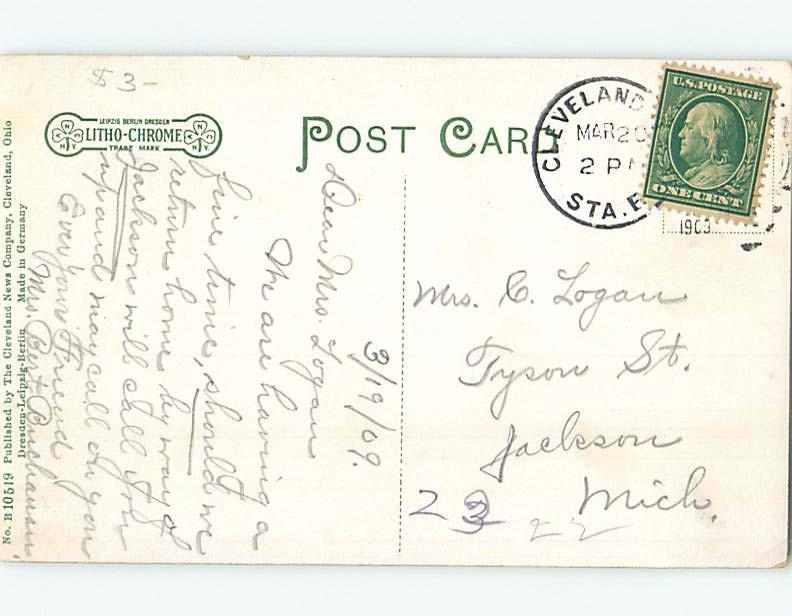 $3-
LEIPZIG BERLIN DRESDEN
LITHO-CHROME
TRADE MARK
POST CARD
CLEVELAND
MAR 20
2 PM
STA. F
U.S. POSTAGE
ONE CENT
3/19/09.
Dear Mrs. Logan
We are having a
fine time, should we
return home by way of
Jackson will call you
up and may call on you
Ever your Friend
Mrs. Bert Buchanan.
Mrs. C. Logan
Tyson St.
Jackson
Mich.
23
22
No. B 10519 Published by The Cleveland News Company, Cleveland, Ohio
Dresden-Leipzig-Berlin Made in Germany